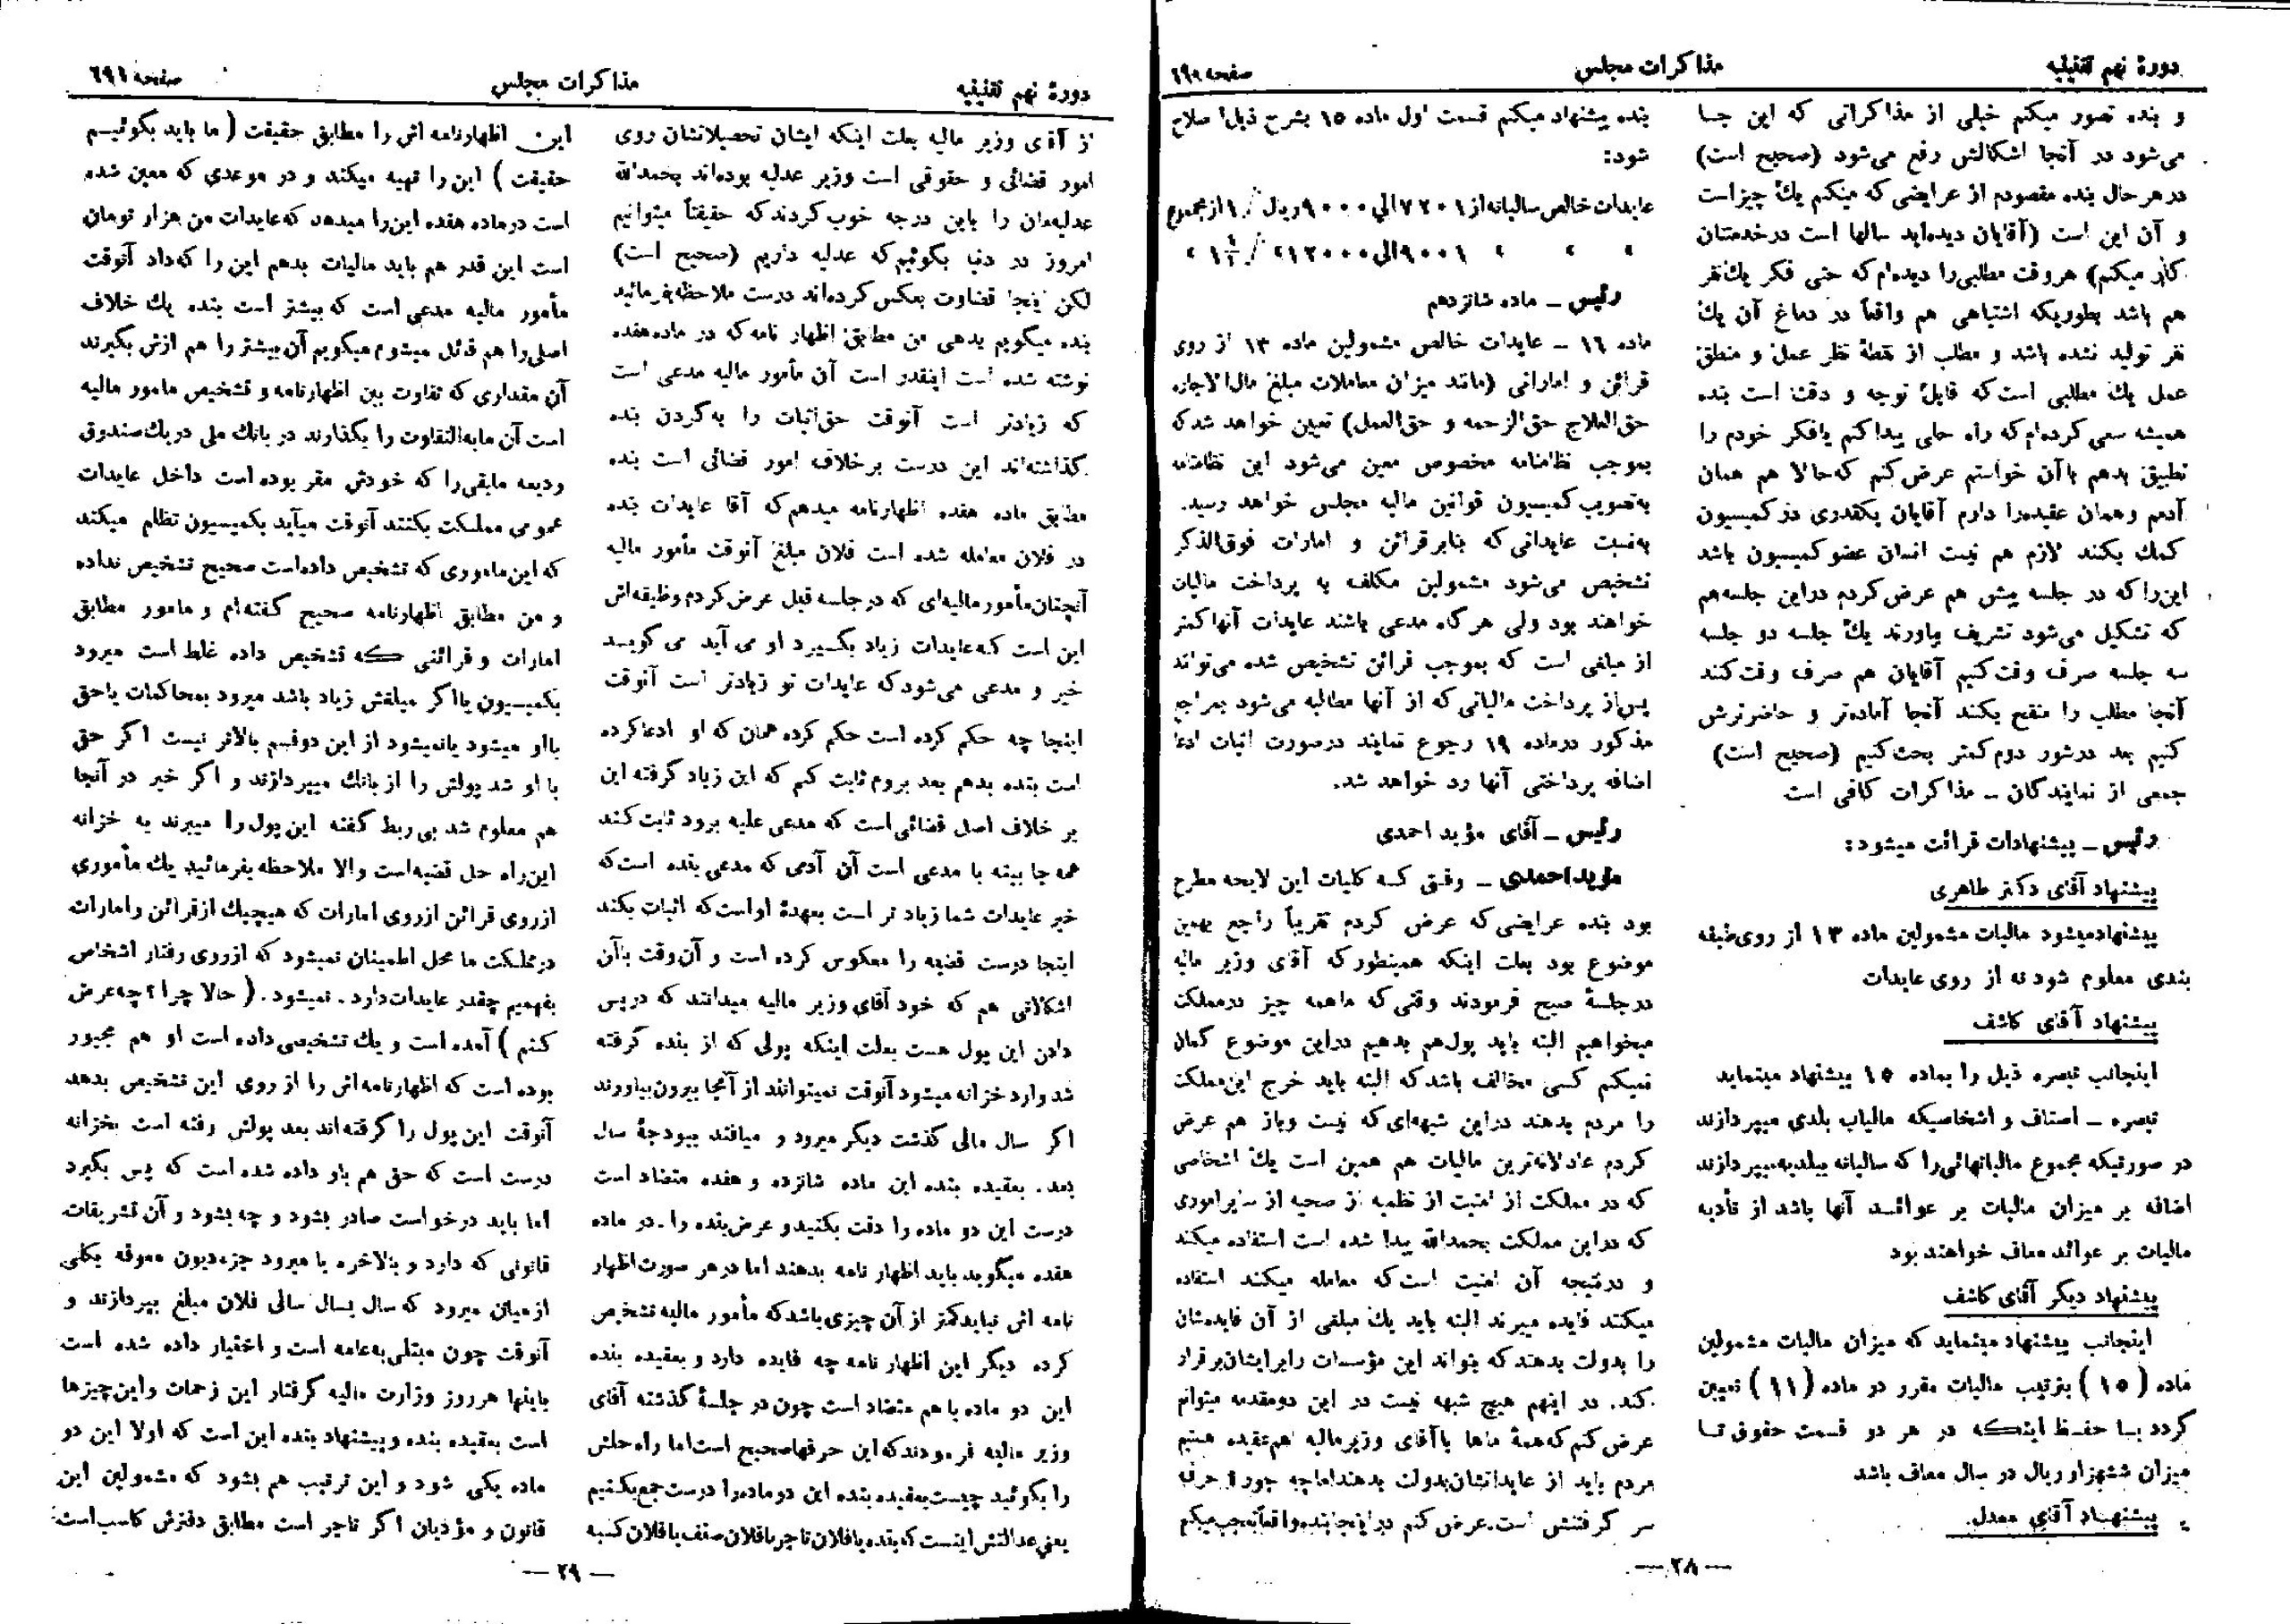 دورهٔ نهم تقنینیه
مذاکرات مجلس
صفحه ٦٩٠
و بنده تصور میکنم خیلی از مذاکراتی که این جا
می‌شود در آنجا اشکالش رفع می‌شود (صحیح است)
در هر حال بنده مقصودم از عرایضی که میکنم یك چیز است
و آن این است (آقایان دیده‌اید سالها است در خدمتتان
کار میکنم) هر وقت مطلبی را دیده‌ام که حتی فکر یك نفر
هم باشد بطوریکه اشتباهی هم واقعاً در دماغ آن یك
نفر تولید نشده باشد و مطلب از نقطهٔ نظر عمل و منطق
عمل یك مطلبی است که قابل توجه و دقت است بنده
همیشه سعی کرده‌ام که راه حلی پیدا کنم یا فکر خودم را
تطبیق بدهم با آن خواستم عرض کنم که حالا هم همان
آدمم و همان عقیده را دارم آقایان یکقدری در کمیسیون
کمك بکنند لازم هم نیست انسان عضو کمیسیون باشد
این را که در جلسه پیش هم عرض کردم در این جلسه هم
که تشکیل می‌شود تشریف بیاورند یك جلسه دو جلسه
سه جلسه صرف وقت کنیم آقایان هم صرف وقت کنند
آنجا مطلب را منقح بکنند آنجا آماده‌تر و حاضرترش
کنیم بعد در شور دوم کمتر بحث کنیم (صحیح است)
جمعی از نمایندگان ـ مذاکرات کافی است
رئیس ـ پیشنهادات قرائت میشود:
پیشنهاد آقای دکتر طاهری
پیشنهاد میشود مالیات مشمولین ماده ١٣ از روی طبقه
بندی معلوم شود نه از روی عایدات
پیشنهاد آقای کاشف
اینجانب تبصره ذیل را بماده ١٥ پیشنهاد مینماید
تبصره ـ اصناف و اشخاصیکه مالیات بلدی میپردازند
در صورتیکه مجموع مالیاتهائی را که سالیانه ببلدیه میپردازند
اضافه بر میزان مالیات بر عوائد آنها باشد از تأدیه
مالیات بر عوائد معاف خواهند بود
پیشنهاد دیگر آقای کاشف
اینجانب پیشنهاد مینماید که میزان مالیات مشمولین
ماده (١٥) بترتیب مالیات مقرر در ماده (١١) تعیین
گردد با حفظ اینکه در هر دو قسمت حقوق تا
میزان ششهزار ریال در سال معاف باشد
پیشنهاد آقای معدل
بنده پیشنهاد میکنم قسمت اول ماده ١٥ بشرح ذیل اصلاح
شود:
عایدات خالص سالیانه از ٧٢٠١ الی ٩٠٠٠ ریال ١٪ از مجموع
» » » ٩٠٠١ الی ١٢٠٠٠ » ٪ ١ ١/٢ »
رئیس ـ ماده شانزدهم
ماده ١٦ ـ عایدات خالص مشمولین ماده ١٣ از روی
قرائن و اماراتی (مانند میزان معاملات مبلغ مال‌الاجاره
حق‌العلاج حق‌الزحمه و حق‌العمل) تعیین خواهد شد که
بموجب نظامنامه مخصوص معین می‌شود این نظامنامه
به‌تصویب کمیسیون قوانین مالیه مجلس خواهد رسید.
به‌نسبت عایداتی که بنابر قرائن و امارات فوق‌الذکر
تشخیص می‌شود مشمولین مکلف به پرداخت مالیات
خواهند بود ولی هر گاه مدعی باشند عایدات آنها کمتر
از مبلغی است که بموجب قرائن تشخیص شده می‌تواند
پس از پرداخت مالیاتی که از آنها مطالبه می‌شود بمراجع
مذکور در ماده ١٩ رجوع نمایند در صورت اثبات ادعا
اضافه پرداختی آنها رد خواهد شد.
رئیس ـ آقای مؤید احمدی
مؤید احمدی ـ وقتی که کلیات این لایحه مطرح
بود بنده عرایضی که عرض کردم تقریباً راجع بهمین
موضوع بود بعلت اینکه همینطور که آقای وزیر مالیه
در جلسهٔ صبح فرمودند وقتی که ما همه چیز در مملکت
میخواهیم البته باید پول هم بدهیم در این موضوع گمان
نمیکنم کسی مخالف باشد که البته باید خرج این مملکت
را مردم بدهند در این شبهه‌ای که نیست و باز هم عرض
کردم عادلانه‌ترین مالیات هم همین است یك اشخاصی
که در مملکت از امنیت از نظمیه از صحیه از سایر اموری
که در این مملکت بحمدالله پیدا شده است استفاده میکند
و در نتیجه آن امنیت است که معامله میکند استفاده
میکنند فایده میبرند البته باید یك مبلغی از آن فایده‌شان
را بدولت بدهند که بتواند این مؤسسات را برایشان برقرار
کند. در اینهم هیچ شبهه نیست در این دو مقدمه میتوانم
عرض کنم که همهٔ ماها با آقای وزیر مالیه هم‌عقیده هستیم
مردم باید از عایداتشان بدولت بدهند اما چه جور؟ حرف
سر گرفتنش است. عرض کنم در اینجا بنده واقعاً تعجب میکنم
— ٢٨ —
دورهٔ نهم تقنینیه
مذاکرات مجلس
صفحه ٦٩١
از آقای وزیر مالیه بعلت اینکه ایشان تحصیلاتشان روی
امور قضائی و حقوقی است وزیر عدلیه بوده‌اند بحمدالله
عدلیه‌مان را باین درجه خوب کردند که حقیقتاً میتوانیم
امروز در دنیا بگوئیم که عدلیه داریم (صحیح است)
لکن اینجا قضاوت بعکس کرده‌اند درست ملاحظه بفرمائید
بنده میگویم بدهی من مطابق اظهار نامه که در ماده هفده
نوشته شده است اینقدر است آن مأمور مالیه مدعی است
که زیادتر است آنوقت حق اثبات را به گردن بنده
گذاشته‌اند این درست برخلاف امور قضائی است بنده
مطابق ماده هفده اظهارنامه میدهم که آقا عایدات بنده
در فلان معامله شده است فلان مبلغ آنوقت مأمور مالیه
آنچنان مأمور مالیه‌ای که در جلسه قبل عرض کردم وظیفه‌اش
این است که عایدات زیاد بگیرد او می آید می گوید
خیر و مدعی می‌شود که عایدات تو زیادتر است آنوقت
اینجا چه حکم کرده است حکم کرده همان که او ادعا کرده
است بنده بدهم بعد بروم ثابت کنم که این زیاد گرفته این
بر خلاف اصل قضائی است که مدعی علیه برود ثابت کند
همه جا بینه با مدعی است آن آدمی که مدعی بنده است که
خیر عایدات شما زیاد تر است بعهدهٔ او است که اثبات بکند
اینجا درست قضیه را معکوس کرده است و آن وقت با آن
اشکالاتی هم که خود آقای وزیر مالیه میدانند که در پس
دادن این پول هست بعلت اینکه پولی که از بنده گرفته
شد وارد خزانه میشود آنوقت نمیتوانند از آنجا بیرون بیاورند
اگر سال مالی گذشت دیگر میرود و میافتد ببودجهٔ سال
بعد. بعقیده بنده این ماده شانزده و هفده متضاد است
درست این دو ماده را دقت بکنید و عرض بنده را. در ماده
هفده میگوید باید اظهار نامه بدهند اما در هر صورت اظهار
نامه اش نباید کمتر از آن چیزی باشد که مأمور مالیه تشخیص
کرده دیگر این اظهار نامه چه فایده دارد و بعقیده بنده
این دو ماده با هم متضاد است چون در جلسهٔ گذشته آقای
وزیر مالیه فرمودند که این حرفها صحیح است اما راه حلش
را بگوئید چیست بعقیده بنده این دو ماده را درست جمع بکنیم
یعنی عدالتش اینست که بنده یا فلان تاجر یا فلان صنف یا فلان کسبه
این اظهارنامه اش را مطابق حقیقت (ما باید بگوئیم
حقیقت) این را تهیه میکند و در موعدی که معین شده
است در ماده هفده این را میدهد که عایدات من هزار تومان
است این قدر هم باید مالیات بدهم این را که داد آنوقت
مأمور مالیه مدعی است که بیشتر است بنده یك خلاف
اصلی را هم قائل میشوم میگویم آن بیشتر را هم ازش بگیرند
آن مقداری که تفاوت بین اظهارنامه و تشخیص مامور مالیه
است آن مابه‌التفاوت را بگذارند در بانك ملی در یك صندوق
ودیعه مابقی را که خودش مقر بوده است داخل عایدات
عمومی مملکت بکنند آنوقت میآید بکمیسیون تظلم میکند
که این ماموری که تشخیص داده‌است صحیح تشخیص نداده
و من مطابق اظهارنامه صحیح گفته‌ام و مامور مطابق
امارات و قرائنی که تشخیص داده غلط است میرود
بکمیسیون یا اگر مبلغش زیاد باشد میرود بمحاکمات یا حق
با او میشود یا نمیشود از این دو قسم بالاتر نیست اگر حق
با او شد پولش را از بانك میپردازند و اگر خیر در آنجا
هم معلوم شد بی ربط گفته این پول را میبرند به خزانه
این راه حل قضیه‌است والا ملاحظه بفرمائید یك مأموری
از روی قرائن از روی امارات که هیچیك از قرائن و امارات
در مملکت ما محل اطمینان نمیشود که از روی رفتار اشخاص
بفهمیم چقدر عایدات دارد. نمیشود. (حالا چرا؟ چه عرض
کنم) آمده است و یك تشخیصی داده است او هم مجبور
بوده است که اظهارنامه اش را از روی این تشخیص بدهد
آنوقت این پول را گرفته‌اند بعد پولش رفته است بخزانه
درست است که حق هم باو داده شده است که پس بگیرد
اما باید درخواست صادر بشود و چه بشود و آن تشریفات
قانونی که دارد و بالاخره یا میرود جزء دیون معوقه بکلی
از میان میرود که سال بسال سالی فلان مبلغ بپردازند و
آنوقت چون مبتلی به عامه است و اختیار داده شده است
باینها هر روز وزارت مالیه گرفتار این زحمات و این چیزها
است بعقیده بنده و پیشنهاد بنده این است که اولا این دو
ماده یکی شود و این ترتیب هم بشود که مشمولین این
قانون و مؤدیان اگر تاجر است مطابق دفترش کاسب است
— ٢٩ —